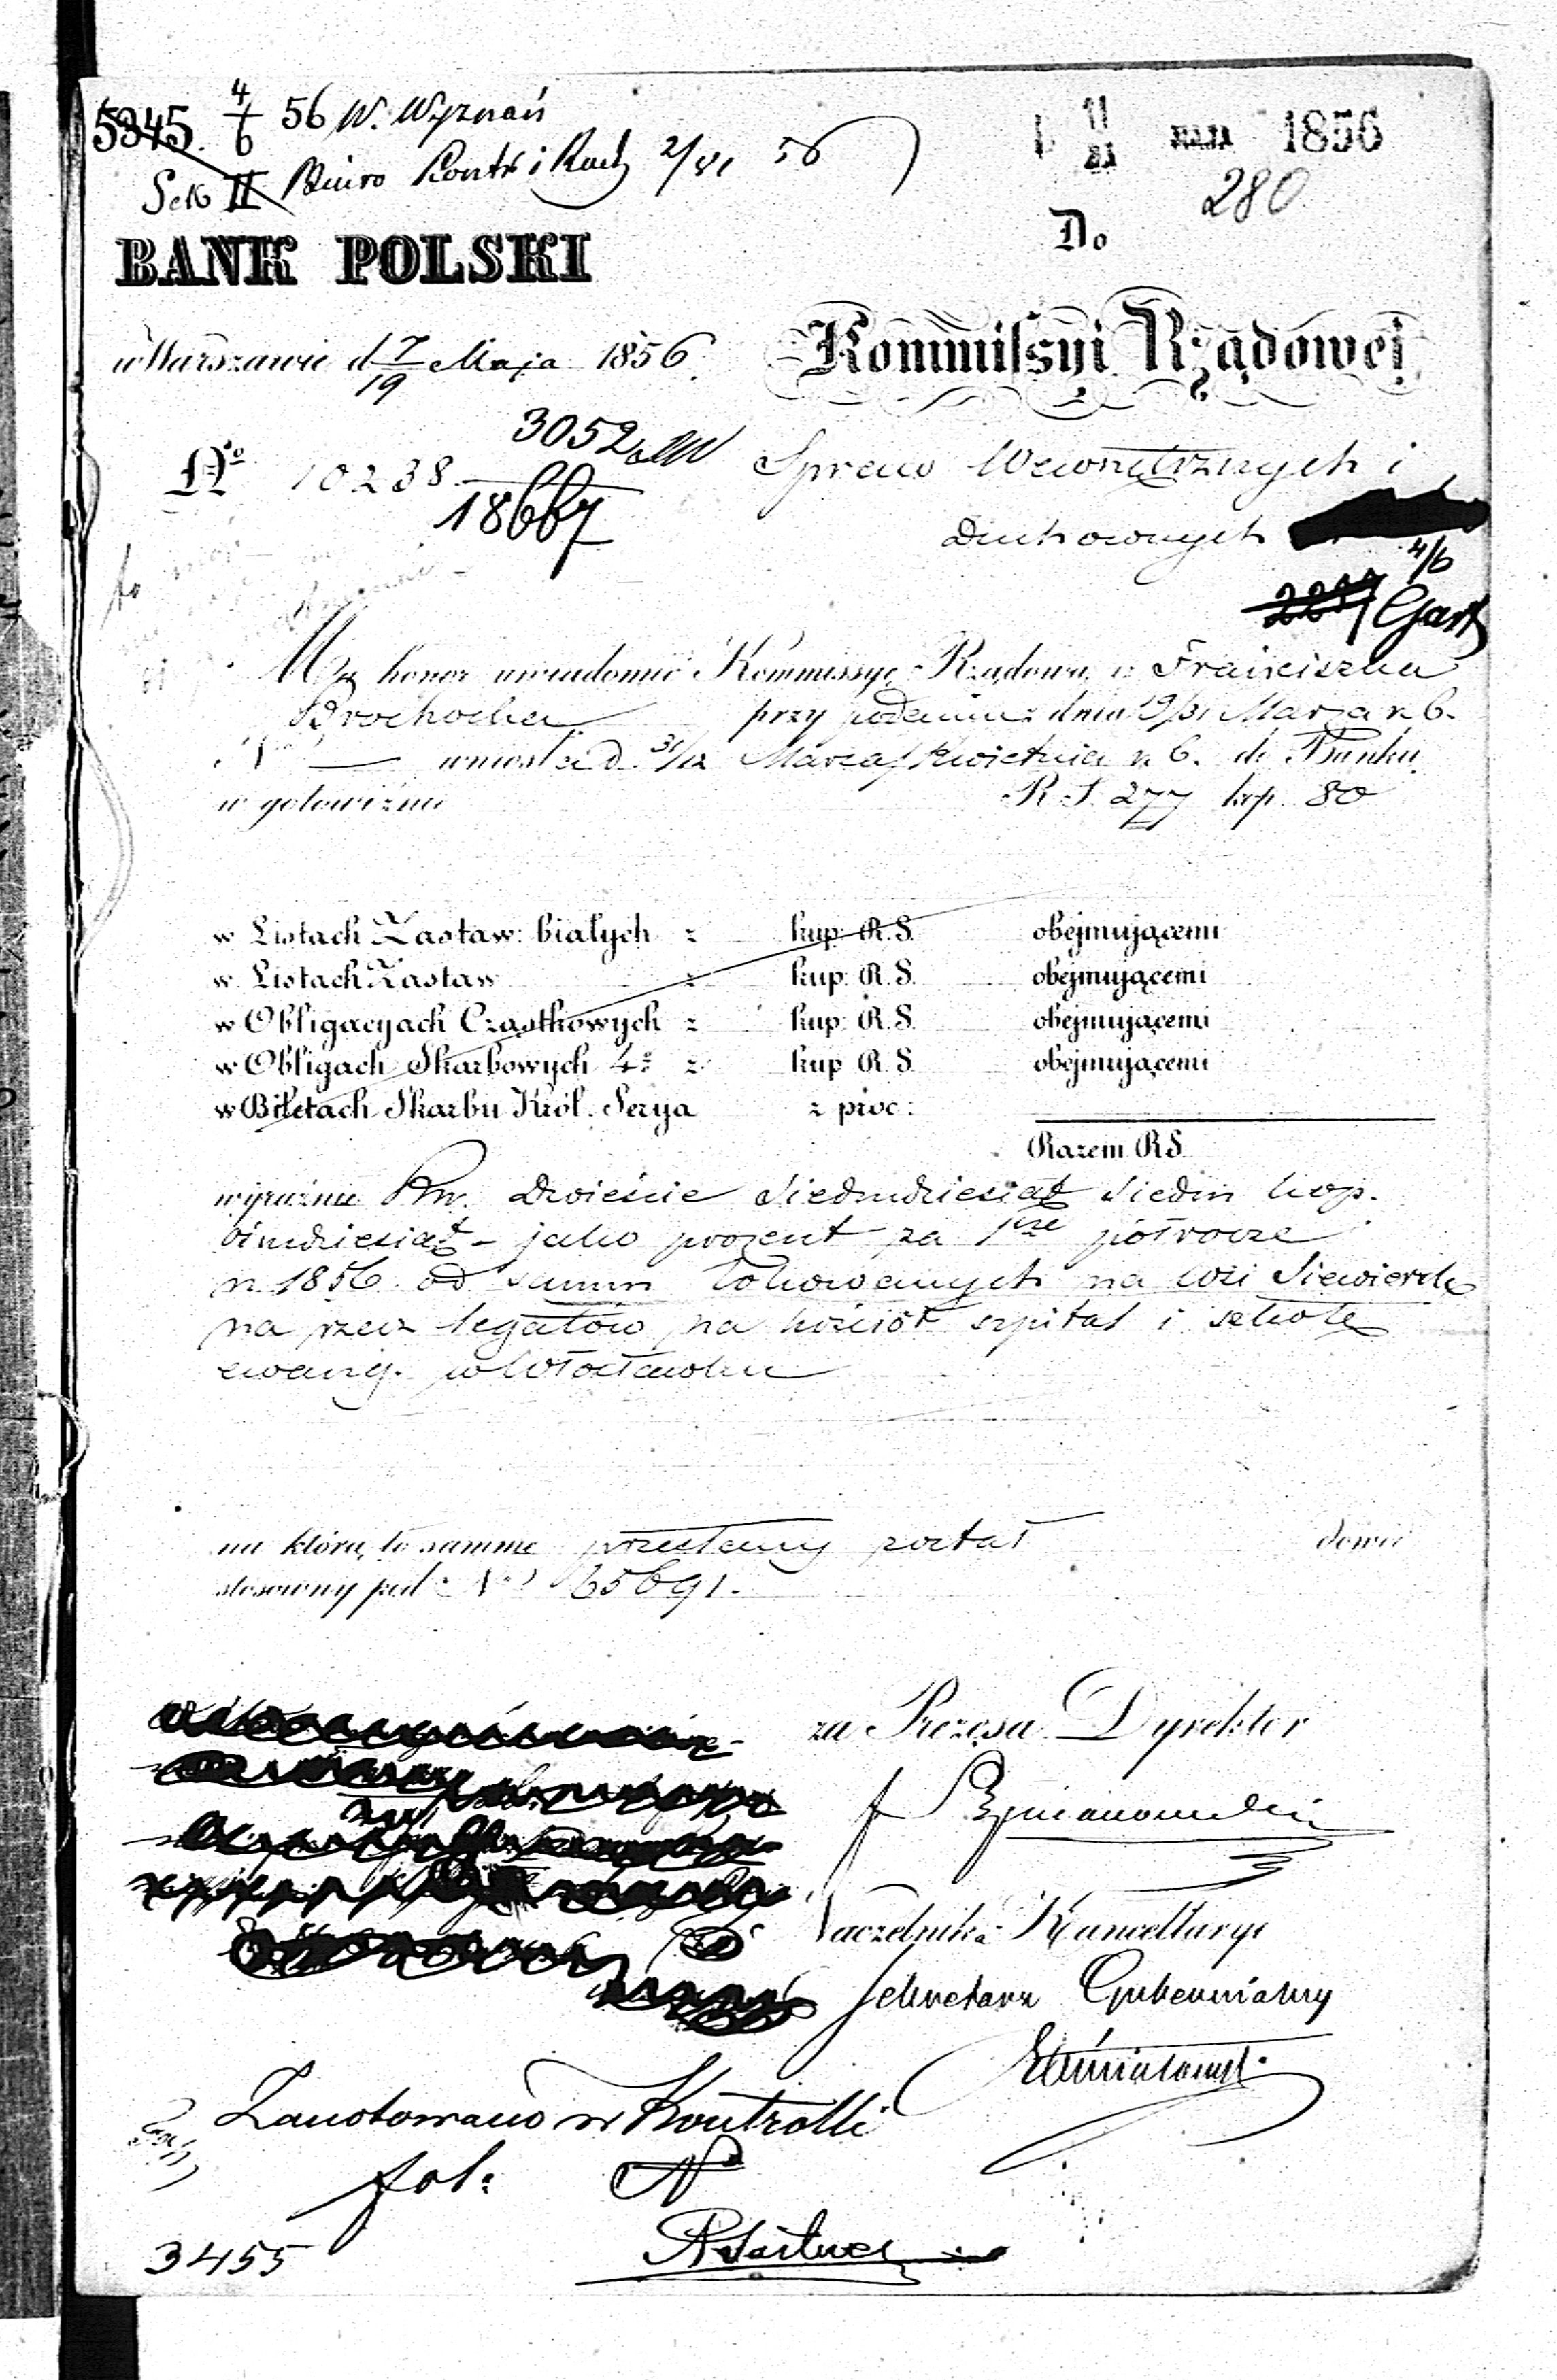 5345. 4/6 56 W. Wyznań
Sek II Biuro Kontr i Rach 2/VI 56
11 1856
280
BANK POLSKI
Do
w Warszawie d 7/19 Maja 1856.
Kommissyi Rządowej
No 10238.
3052
18667
Spraw Wewnętrznych i
Duchownych
4/6
Ma honor uwiadomić Kommissyę Rządową iż Franciszka
Brochocka przy podaniu z dnia 19/31 Marca r. b.
No — wniosła d. 31/12 Marca/Kwietnia r. b. do Banku
w gotowiźnie R.S. 277 kop. 80
w Listach Zastaw: białych z kup: R.S. obejmującemi
w Listach Zastaw z kup: R.S. obejmującemi
w Obligacyach Cząstkowych z kup: R.S. obejmującemi
w Obligach Skarbowych 4% z kup R.S. obejmującemi
w Biletach Skarbu Król. Serya z proc:
Razem RS.
wyraźnie Rsr. Dwieście Siedmdziesiąt Siedm kop.
ośmdziesiąt – jako procent za 1sze półrocze
r. 1856. od summ lokowanych na wsi Siewiersk
na rzecz legatów na kościół szpital i szkołę
ewang. w Włocławku
na którą to summę przesłany został dowód
stosowny pod No 65691.
za Prezesa Dyrektor
Naczelnik Kancellaryi
Sekretarz Gubernialny
Zanotowano w Kontrolli
fol: No
3455